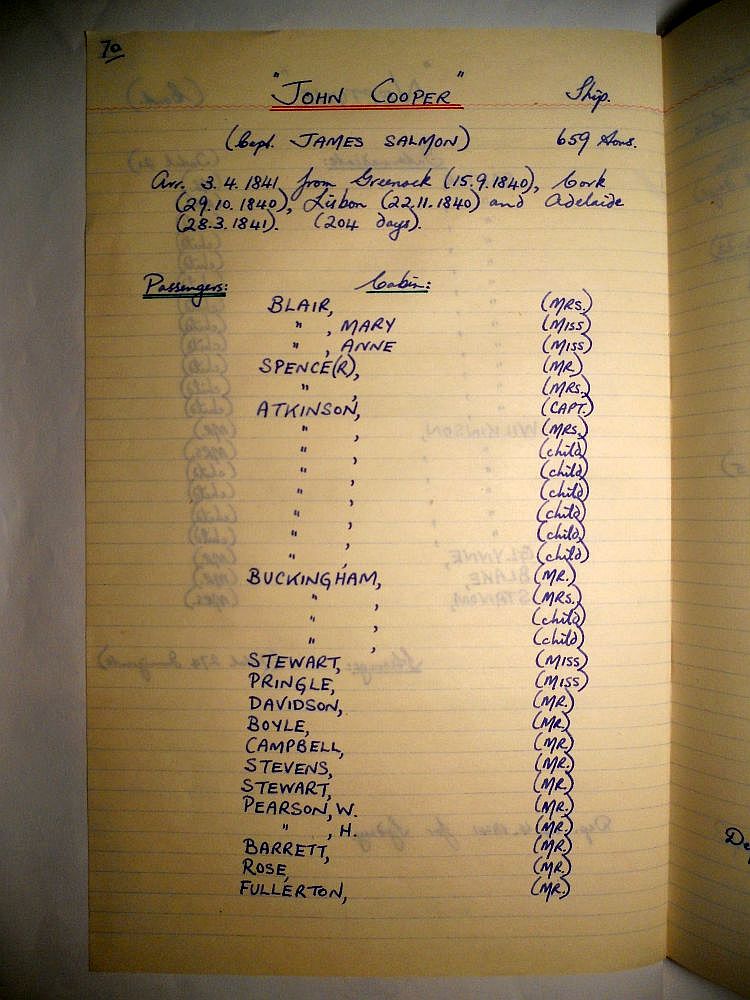 7a
"JOHN COOPER" Ship.
(Capt. JAMES SALMON) 659 tons.
Arr. 3.4.1841 from Greenock (15.9.1840), Cork
(29.10.1840), Lisbon (22.11.1840) and Adelaide
(28.3.1841). (204 days).
Passengers: Cabin:
BLAIR, (MRS.)
" , MARY (MISS)
" , ANNE (MISS)
SPENCE(R), (MR.)
" , (MRS.)
ATKINSON, (CAPT.)
" , (MRS.)
" , (child)
" , (child)
" , (child)
" , (child)
" , (child)
" , (child)
BUCKINGHAM, (MR.)
" , (MRS.)
" , (child)
" , (child)
STEWART, (MISS)
PRINGLE, (MISS)
DAVIDSON, (MR.)
BOYLE, (MR.)
CAMPBELL, (MR.)
STEVENS, (MR.)
STEWART, (MR.)
PEARSON, W. (MR.)
" , H. (MR.)
BARRETT, (MR.)
ROSE, (MR.)
FULLERTON, (MR.)